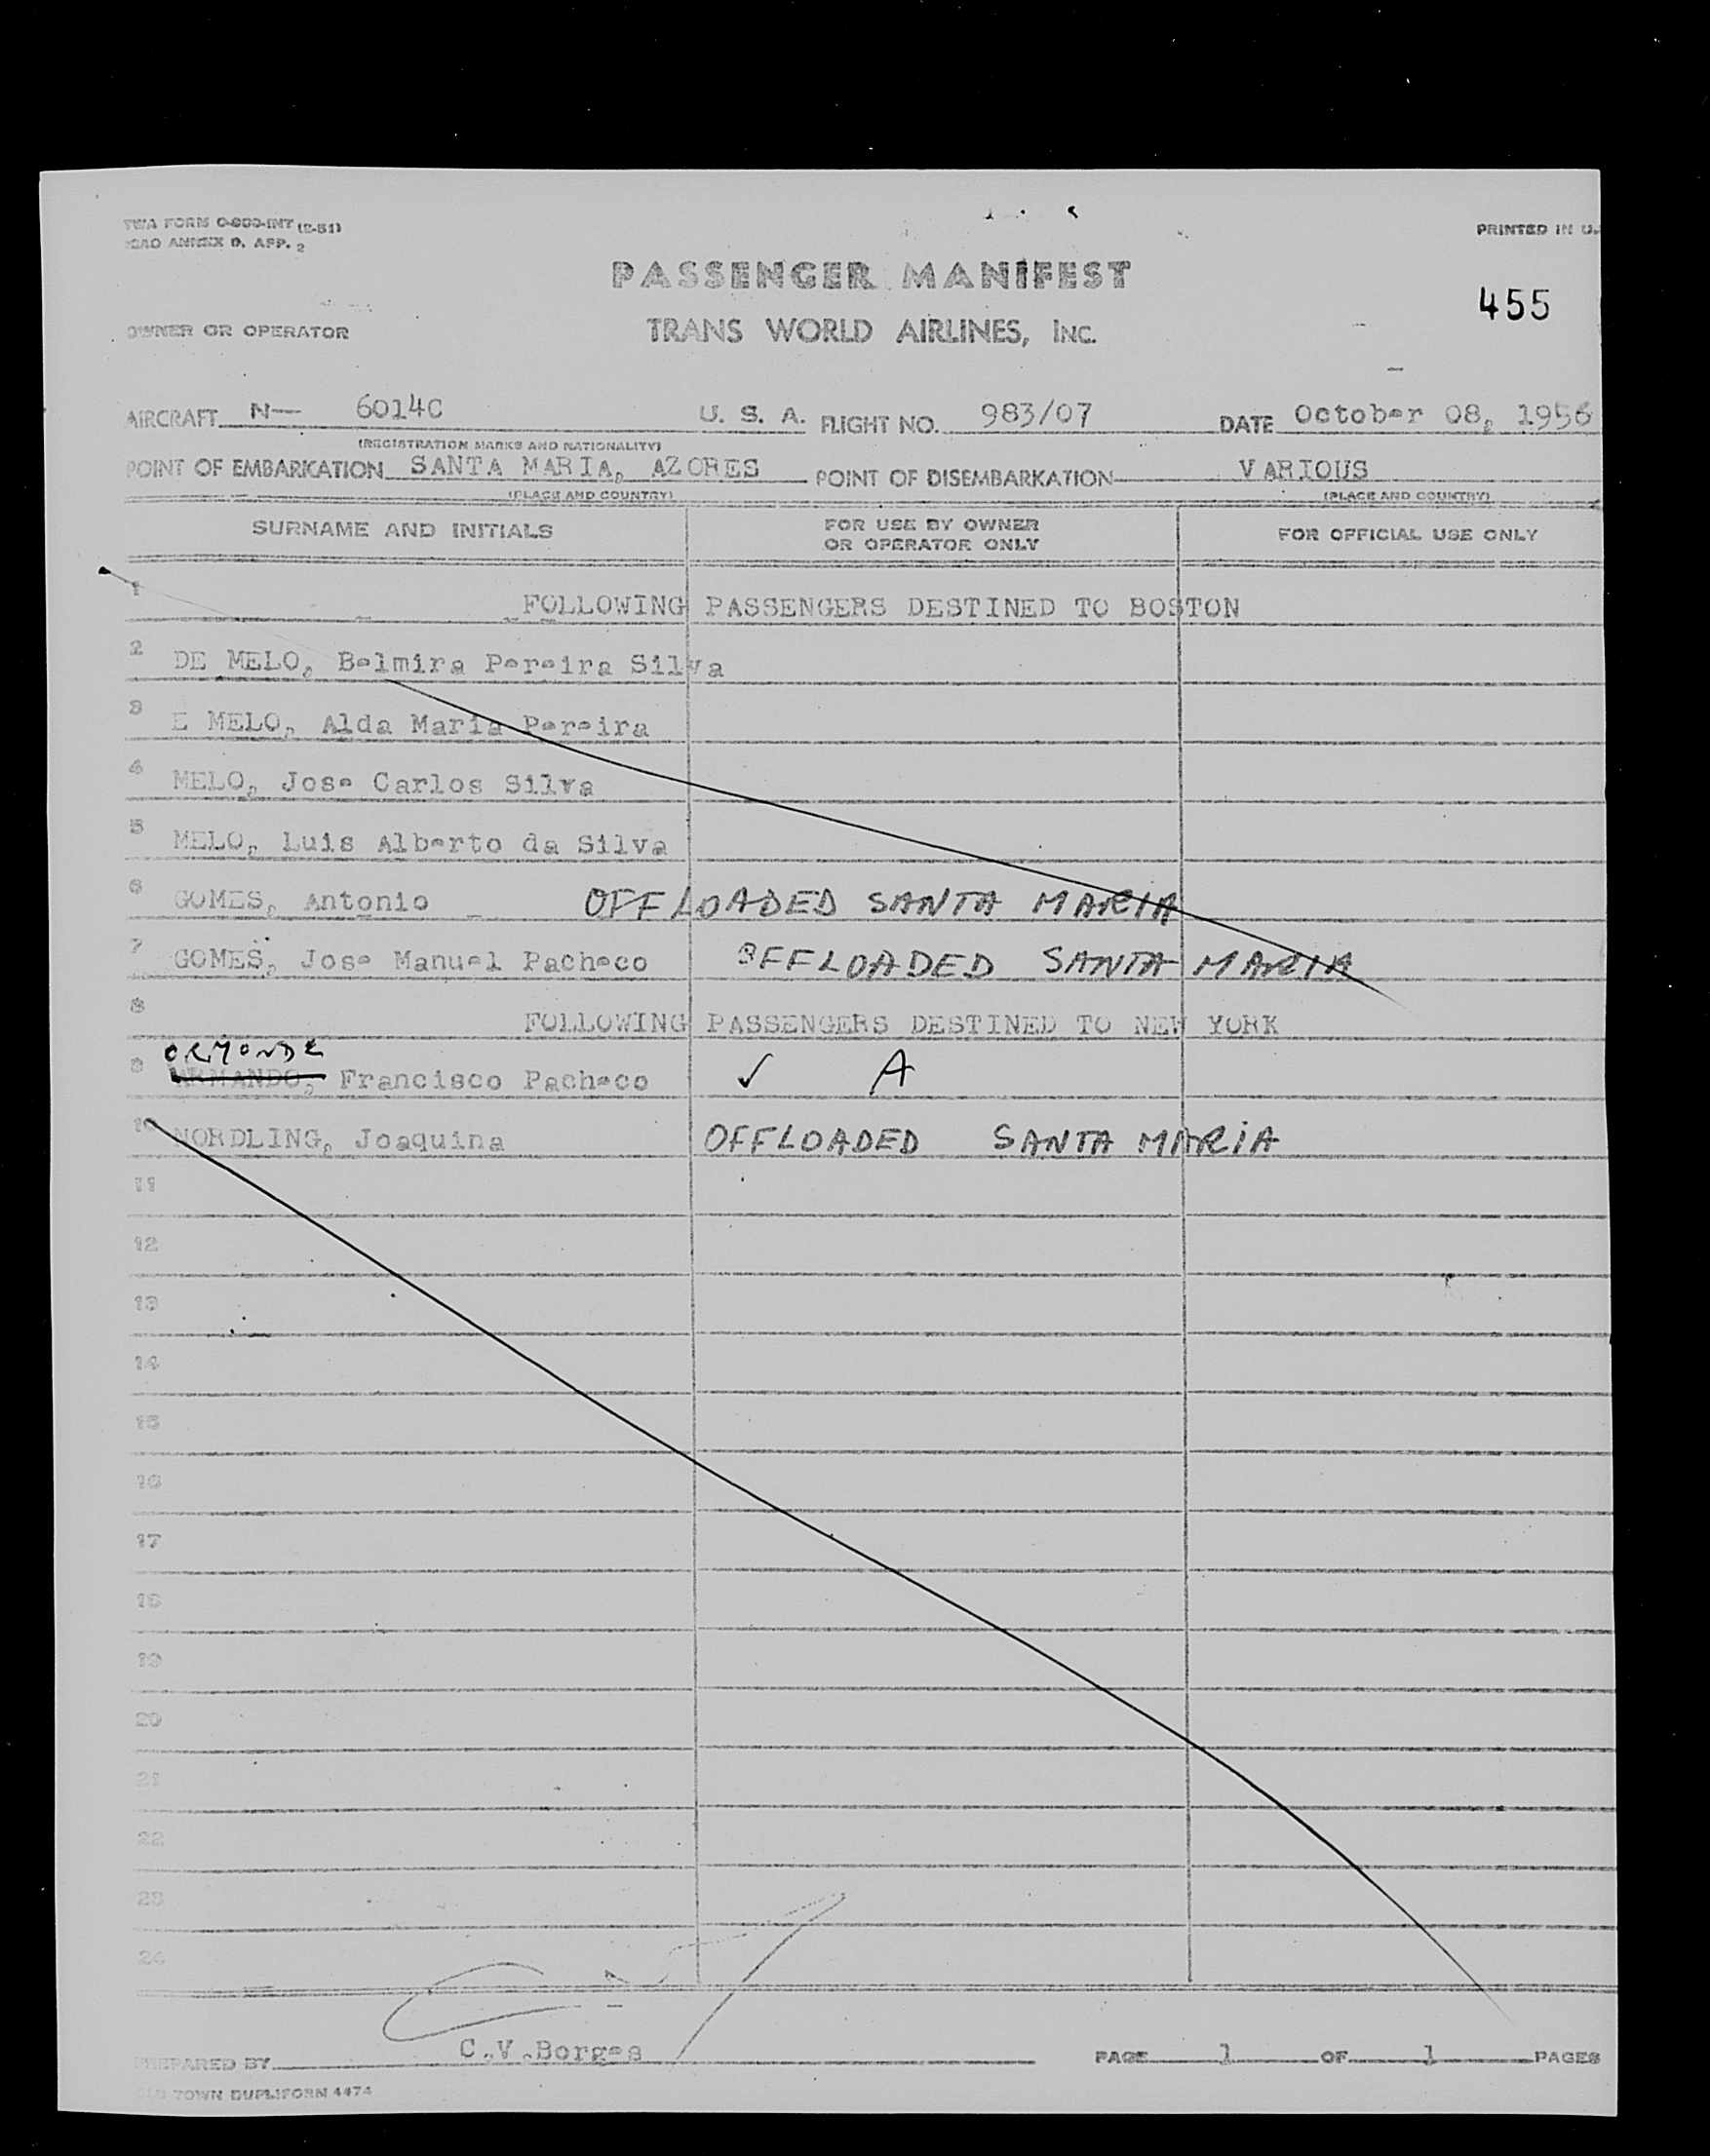 TWA FORM O-800-INT (2-51)
ICAO ANNEX 9, APP. 2
PRINTED IN U.
PASSENGER MANIFEST
455
OWNER OR OPERATOR
TRANS WORLD AIRLINES, INC.
AIRCRAFT N— 6014C U. S. A. FLIGHT NO. 983/07 DATE October 08, 1956
(REGISTRATION MARKS AND NATIONALITY)
POINT OF EMBARKATION SANTA MARIA, AZORES POINT OF DISEMBARKATION VARIOUS
(PLACE AND COUNTRY) (PLACE AND COUNTRY)
SURNAME AND INITIALS FOR USE BY OWNER OR OPERATOR ONLY FOR OFFICIAL USE ONLY
1 FOLLOWING PASSENGERS DESTINED TO BOSTON
2 DE MELO, Belmira Pereira Silva
3 E MELO, Alda Maria Pereira
4 MELO, Jose Carlos Silva
5 MELO, Luis Alberto da Silva
6 GOMES, Antonio OFFLOADED SANTA MARIA
7 GOMES, Jose Manuel Pacheco OFFLOADED SANTA MARIA
8 FOLLOWING PASSENGERS DESTINED TO NEW YORK
ORMONDE
9 ARMANDO, Francisco Pacheco ✓ A
10 NORDLING, Joaquina OFFLOADED SANTA MARIA
11
12
13
14
15
16
17
18
19
20
21
22
23
24
PREPARED BY C.V.Borges PAGE 1 OF 1 PAGES
OLD TOWN DUPLIFORM 4474